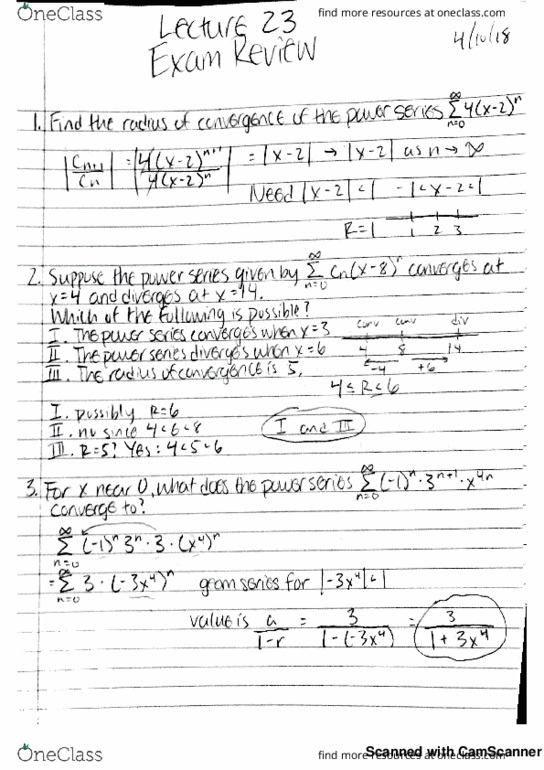 OneClass
find more resources at oneclass.com
Lecture 23
Exam Review
4/10/18
1. Find the radius of convergence of the power series ∞Σn=0 4(x-2)ⁿ
|Cn+1/Cn| = |4(x-2)ⁿ⁺¹/4(x-2)ⁿ| = |x-2| → |x-2| as n → ∞
Need |x-2| < 1 -1 < x-2 < 1
R=1 1 2 3
2. Suppose the power series given by ∞Σn=0 Cn(x-8)ⁿ converges at
x=4 and diverges at x=14.
Which of the following is possible?
I. The power series converges when x=3
II. The power series diverges when x=6
III. The radius of convergence is 5.
conv conv div
4 8 14
-4 +6
4 ≤ R ≤ 6
I. possibly R=6
II. no since 4<6<8
III. R=5? Yes: 4<5<6
I and III
3. For x near 0, what does the power series ∞Σn=0 (-1)ⁿ · 3ⁿ⁺¹ · x⁴ⁿ
converge to?
∞Σn=0 (-1)ⁿ 3ⁿ · 3 · (x⁴)ⁿ
= ∞Σn=0 3 · (-3x⁴)ⁿ geom series for |-3x⁴| < 1
value is a/1-r = 3/1-(-3x⁴) = 3/1+3x⁴
OneClass
find more resources at oneclass.com
Scanned with CamScanner